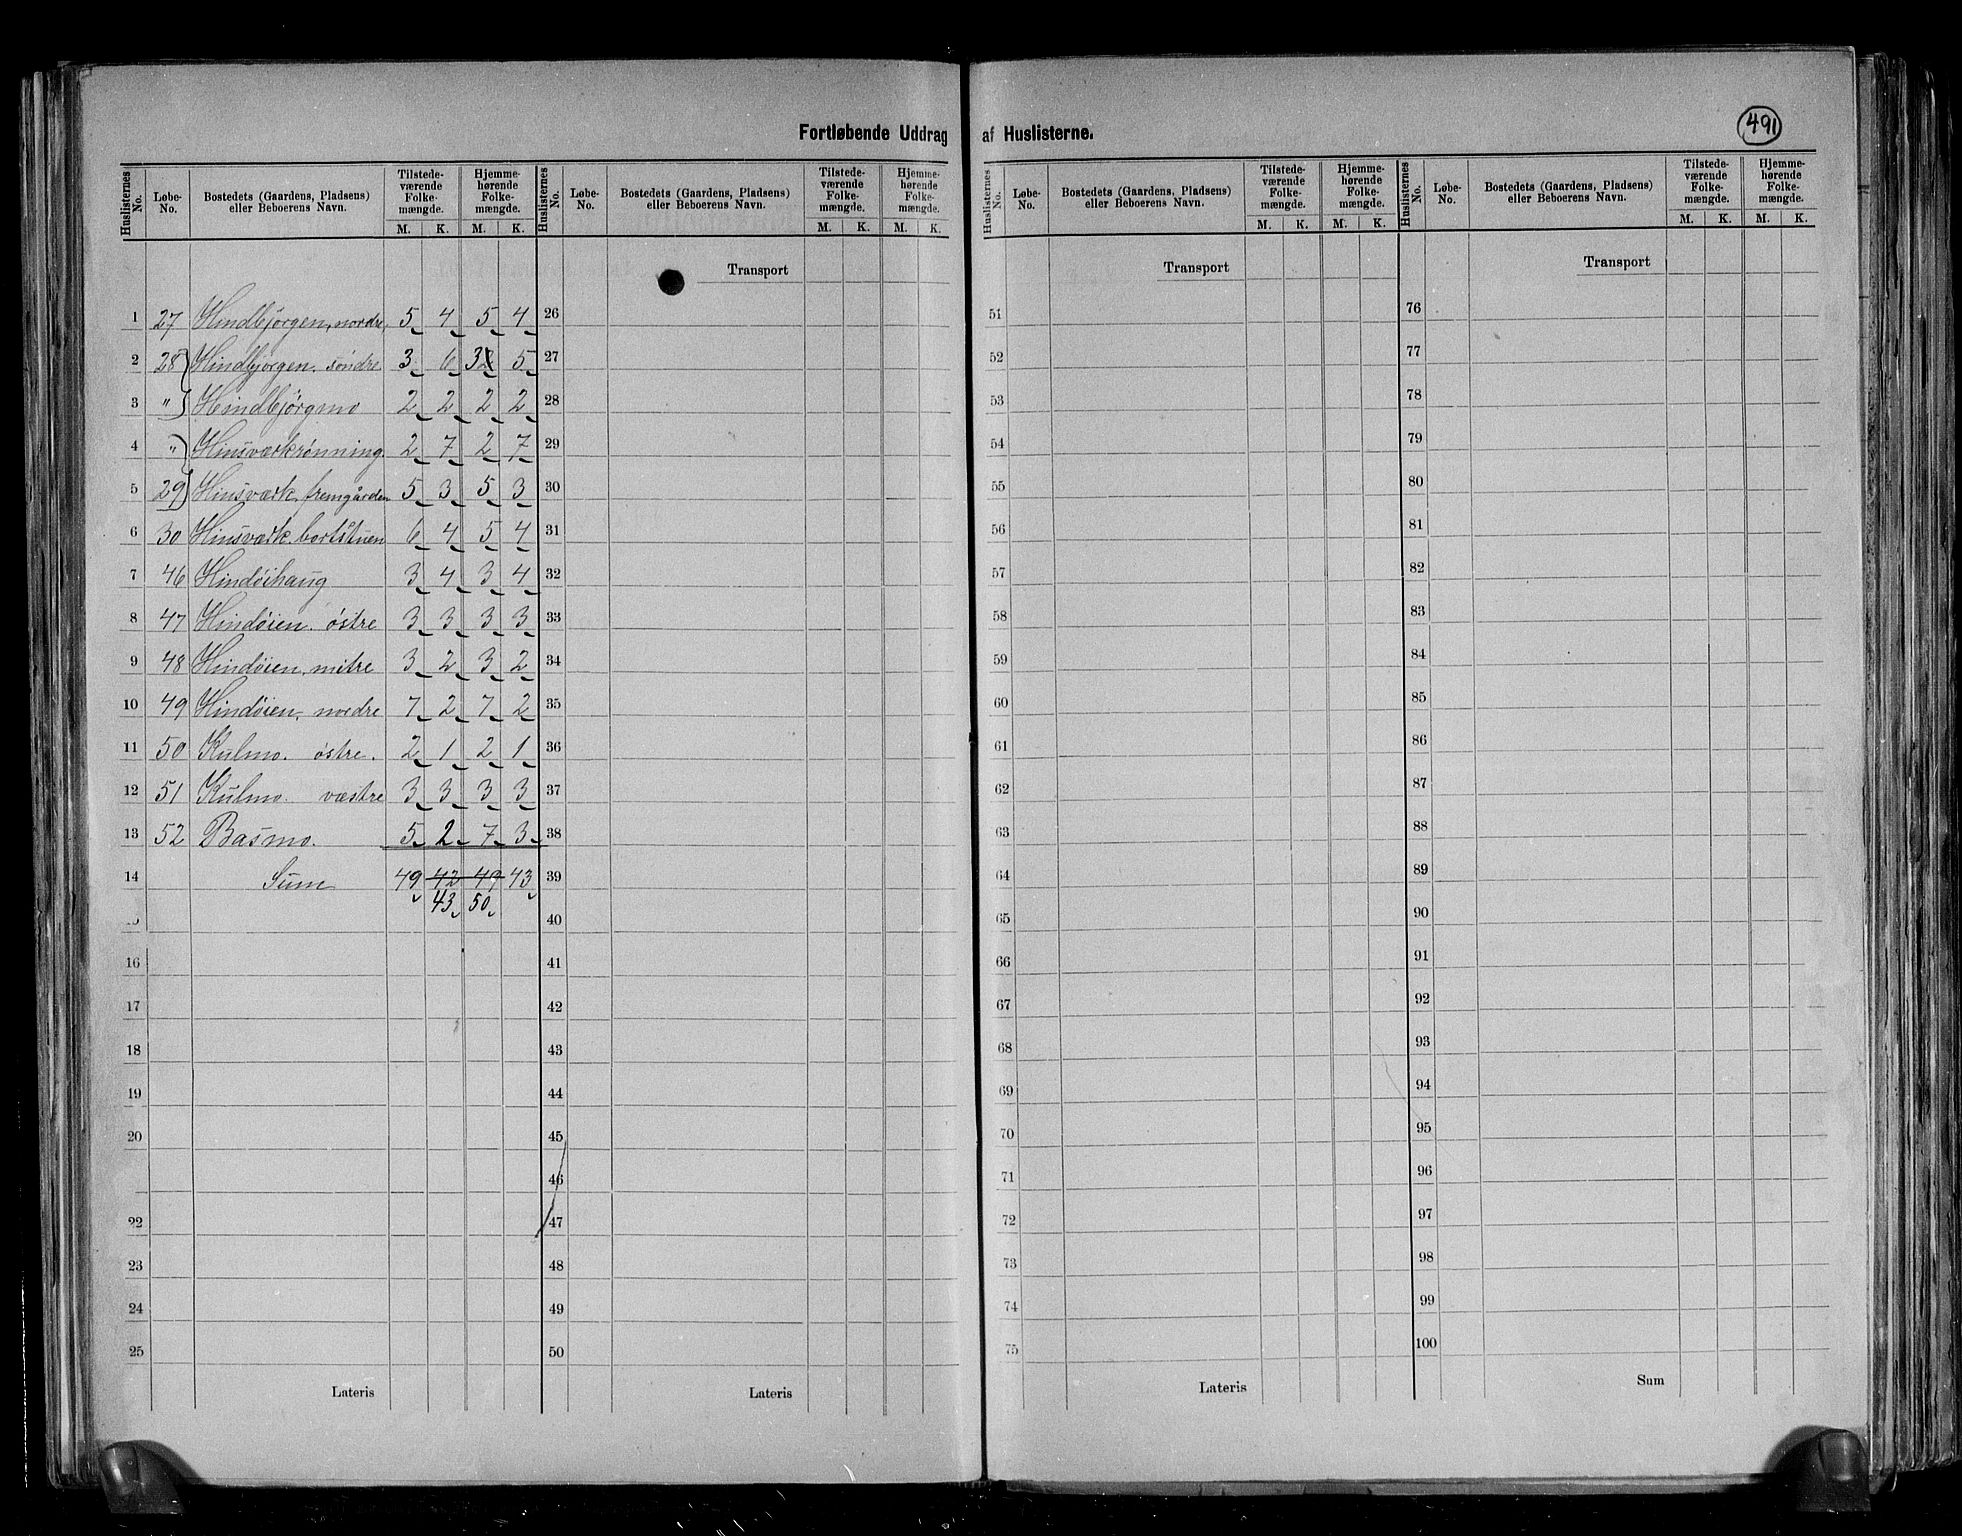 Fortløbende Uddrag af Huslisterne.
491
Huslisternes No. Løbe-No. Bostedets (Gaardens, Pladsens) eller Beboerens Navn. Tilstedeværende Folkemængde. M. K. Hjemmehørende Folkemængde. M. K.
1 27 Hindbjörgen, nordre. 5 4 5 4
2 28 Hindbjörgen. söndre 3 6 3 2 5
3 " Hindbjörgmo 2 2 2 2
4 " Hinsværkrönning. 2 7 2 7
5 29 Hinsværk, fremgården 5 3 5 3
6 30 Hinsværk. bortstuen 6 4 5 4
7 46 Hindöihaug 3 4 3 4
8 47 Hindöien. östre 3 3 3 3
9 48 Hindöien. mitre 3 2 3 2
10 49 Hindöien. nordre 7 2 7 2
11 50 Kulmo. östre. 2 1 2 1
12 51 Kulmo. væstre 3 3 3 3
13 52 Basmo. 5 2 7 3
14 Sum 49 42 49 43
43 50
16
17
18
19
20
22
23
24
25
Lateris
Huslisternes No. Løbe-No. Bostedets (Gaardens, Pladsens) eller Beboerens Navn. Tilstedeværende Folkemængde. M. K. Hjemmehørende Folkemængde. M. K.
Transport
26
27
28
29
30
31
32
33
34
35
36
37
38
39
40
41
42
43
44
45
46
47
48
49
50
Lateris
Huslisternes No. Løbe-No. Bostedets (Gaardens, Pladsens) eller Beboerens Navn. Tilstedeværende Folkemængde. M. K. Hjemmehørende Folkemængde. M. K.
Transport
51
52
53
54
55
56
57
58
59
60
61
62
63
64
65
66
67
68
69
70
71
72
73
74
75
Lateris
Huslisternes No. Løbe-No. Bostedets (Gaardens, Pladsens) eller Beboerens Navn. Tilstedeværende Folkemængde. M. K. Hjemmehørende Folkemængde. M. K.
Transport
76
77
78
79
80
81
82
83
84
85
86
87
88
89
90
91
92
93
94
95
96
97
98
99
100
Sum